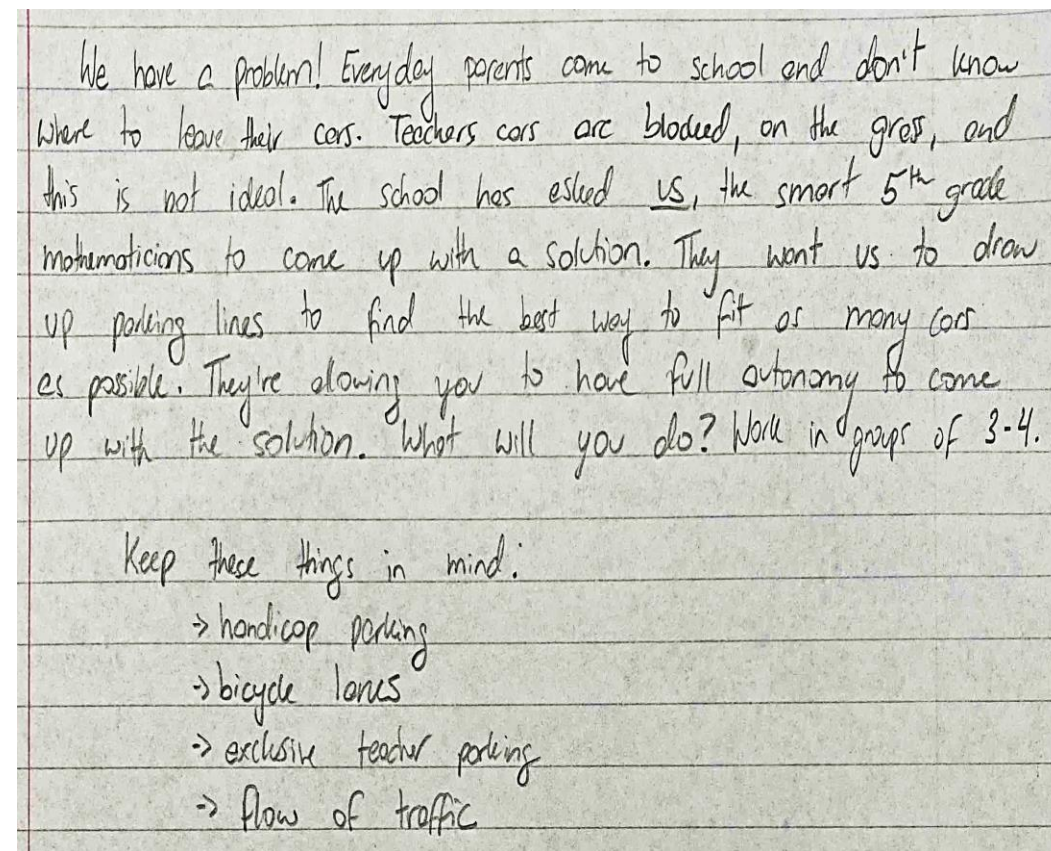 We have a problem! Everyday parents come to school and don't know
where to leave their cars. Teachers cars are blocked, on the grass, and
this is not ideal. The school has asked us, the smart 5th grade
mathematicians to come up with a solution. They want us to draw
up parking lines to find the best way to fit as many cars
as possible. They're allowing you to have full autonomy to come
up with the solution. What will you do? Work in groups of 3-4.
Keep these things in mind:
→ handicap parking
→ bicycle lanes
→ exclusive teacher parking
→ flow of traffic